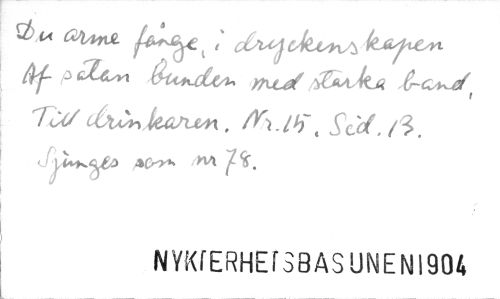 Du arme fånge, i dryckenskapen
Af satan bunden med starka band,
Till drinkaren. Nr. 15. Sid. 13.
Sjunges som nr 78.
NYKTERHETSBASUNEN1904